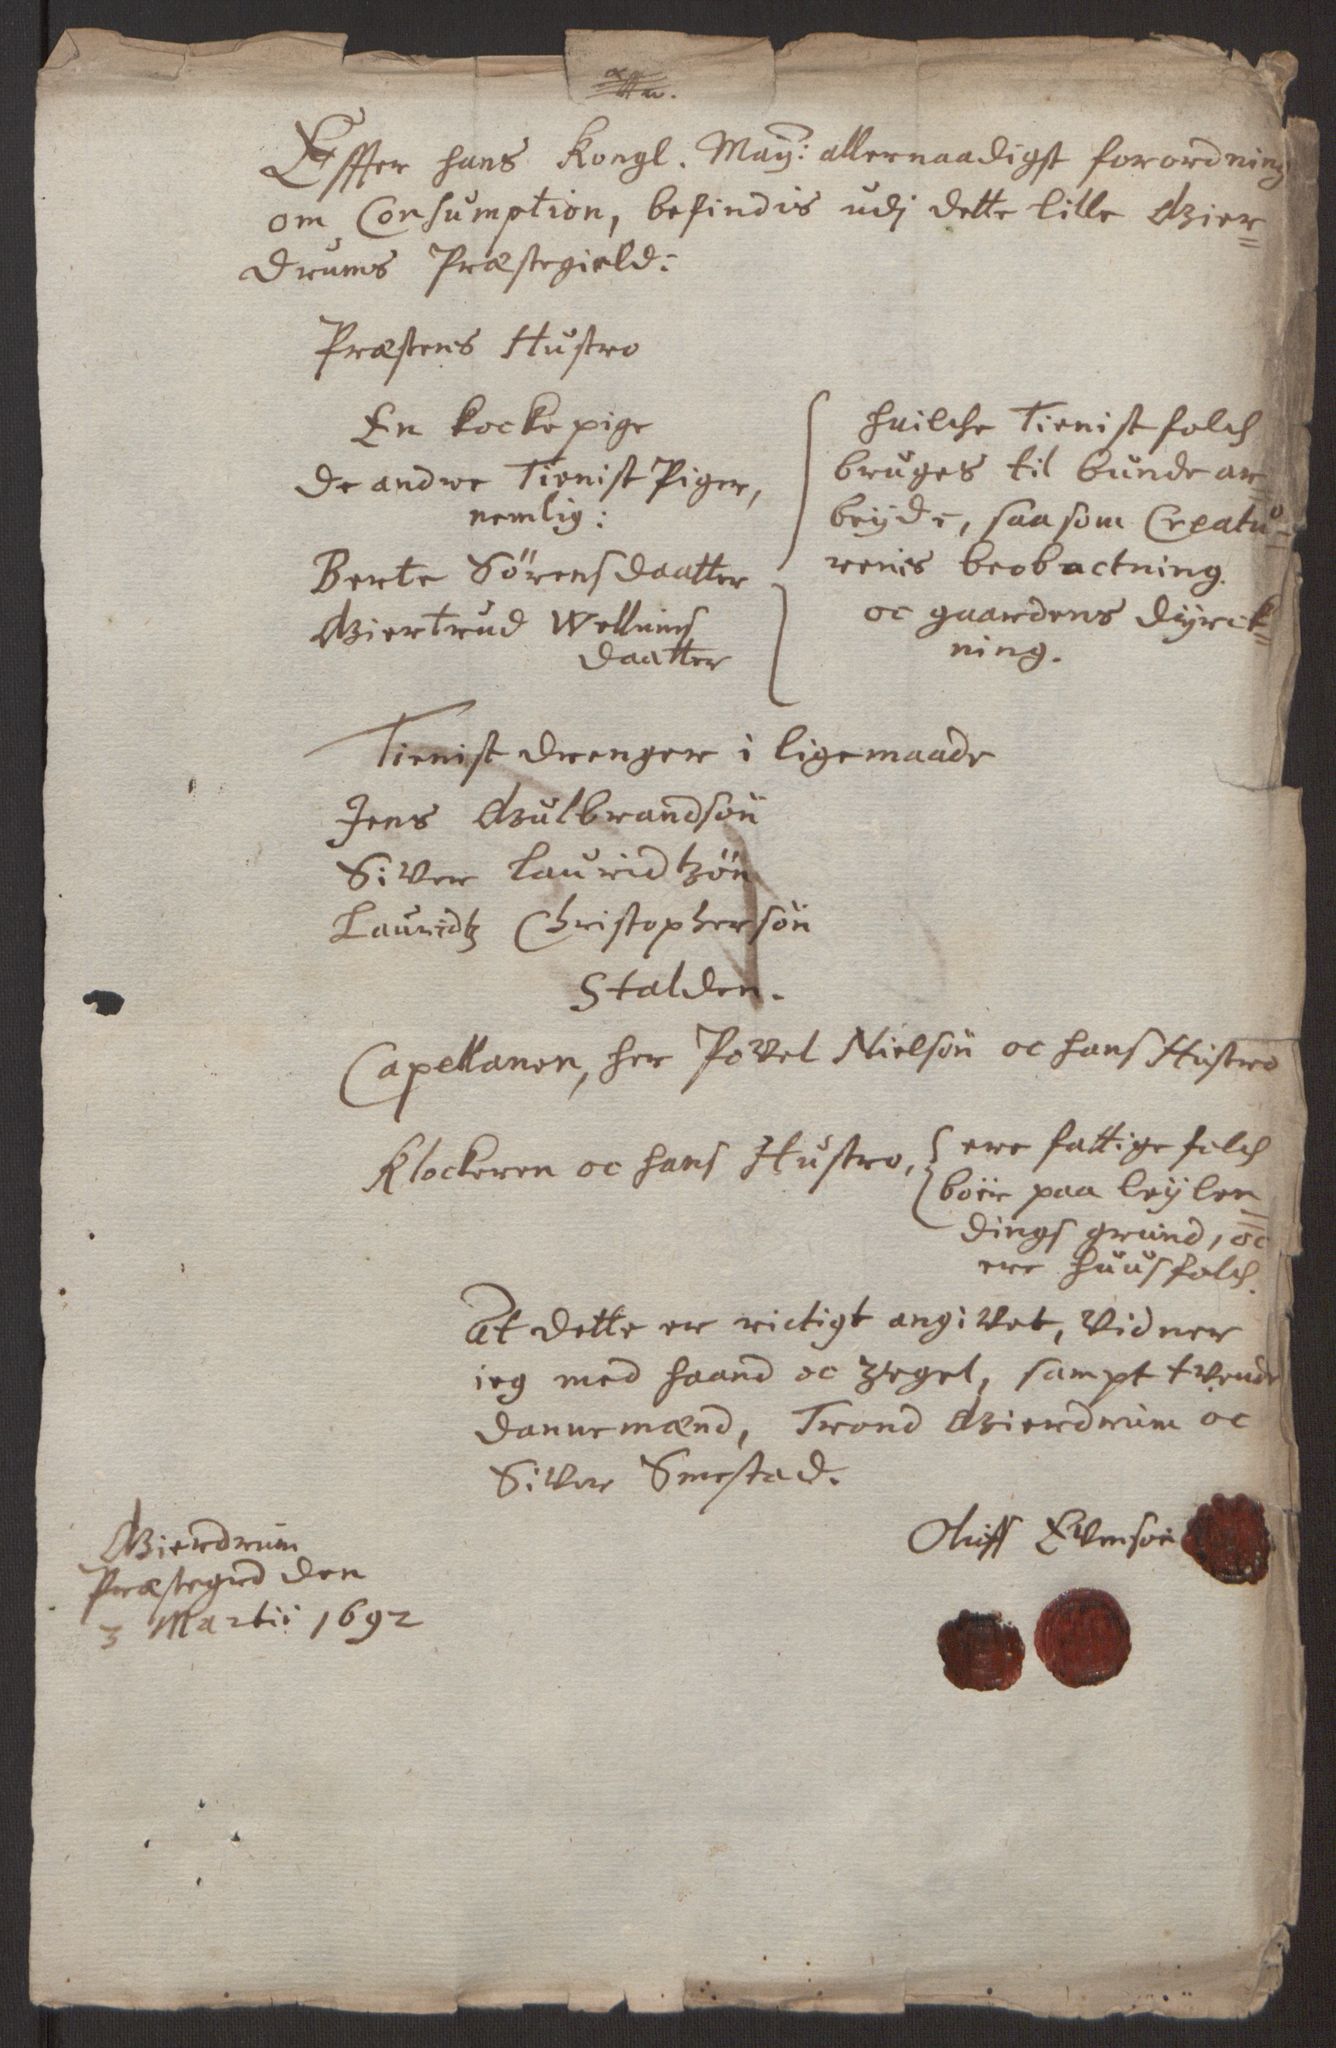 Effter hans Kongl. Maÿ: allernaadigst forordning
om Consumption, befindis udj dette lille Gier=
drums Præstegield:
Præstens Hustro
En kocke pige
De andre Tienist Piger,
nemlig:
Berte Sörensdaatter
Giertrud Wellums
daatter
huilche Tienist folch
bruges til bunde ar=
beÿde, saasom Creatu=
renis beobactning
oc gaardens dÿrck=
ning.
Tienist drenger i ligemaade
Jens Gulbrandsön
Siver Lauridtzön
Lauridtz Christophersön
Stalden.
Capellanen, her Povel Nielsön oc hans Hustro
Klockeren oc hans Hustro,
ere fattige folch
böer paa leÿlen=
dings grund, oc
ere huusfolch.
At dette er rictigt angivet, vidner
ieg med haand oc Zegel, sampt tvende
dannemænd, Trond Gierdrum oc
Siver Smestad.
Oluff Evensön
Gierdrum
Præstegrd den
3 Martii 1692